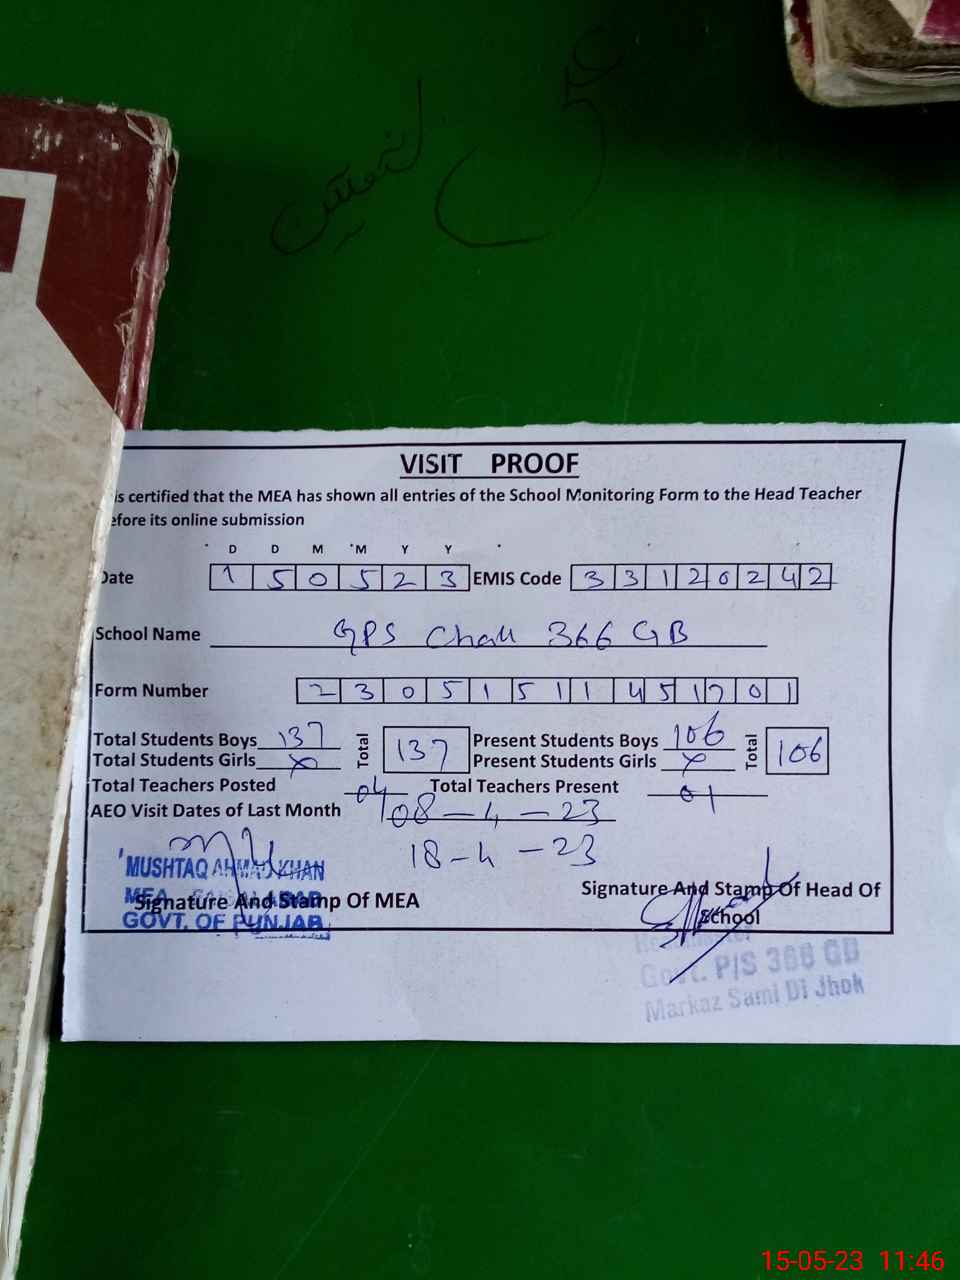 VISIT PROOF
is certified that the MEA has shown all entries of the School Monitoring Form to the Head Teacher
efore its online submission
D D M M Y Y
Date 1 5 0 5 2 3 EMIS Code 3 3 1 2 0 2 4 2
School Name GPS Chak 366 GB
Form Number 2 3 0 5 1 5 1 1 4 5 1 7 0 1
Total Students Boys 137 Total 137 Present Students Boys 106 Total 106
Total Students Girls x Present Students Girls x
Total Teachers Posted 04 Total Teachers Present 01
AEO Visit Dates of Last Month 08-4-23
18-4-23
MUSHTAQ AHMAD KHAN
MEA FAISALABAD
Signature And Stamp Of MEA
GOVT. OF PUNJAB
Signature And Stamp Of Head Of
School
Headmaster
Govt. P/S 366 GB
Markaz Sami Di Jhok
15-05-23 11:46